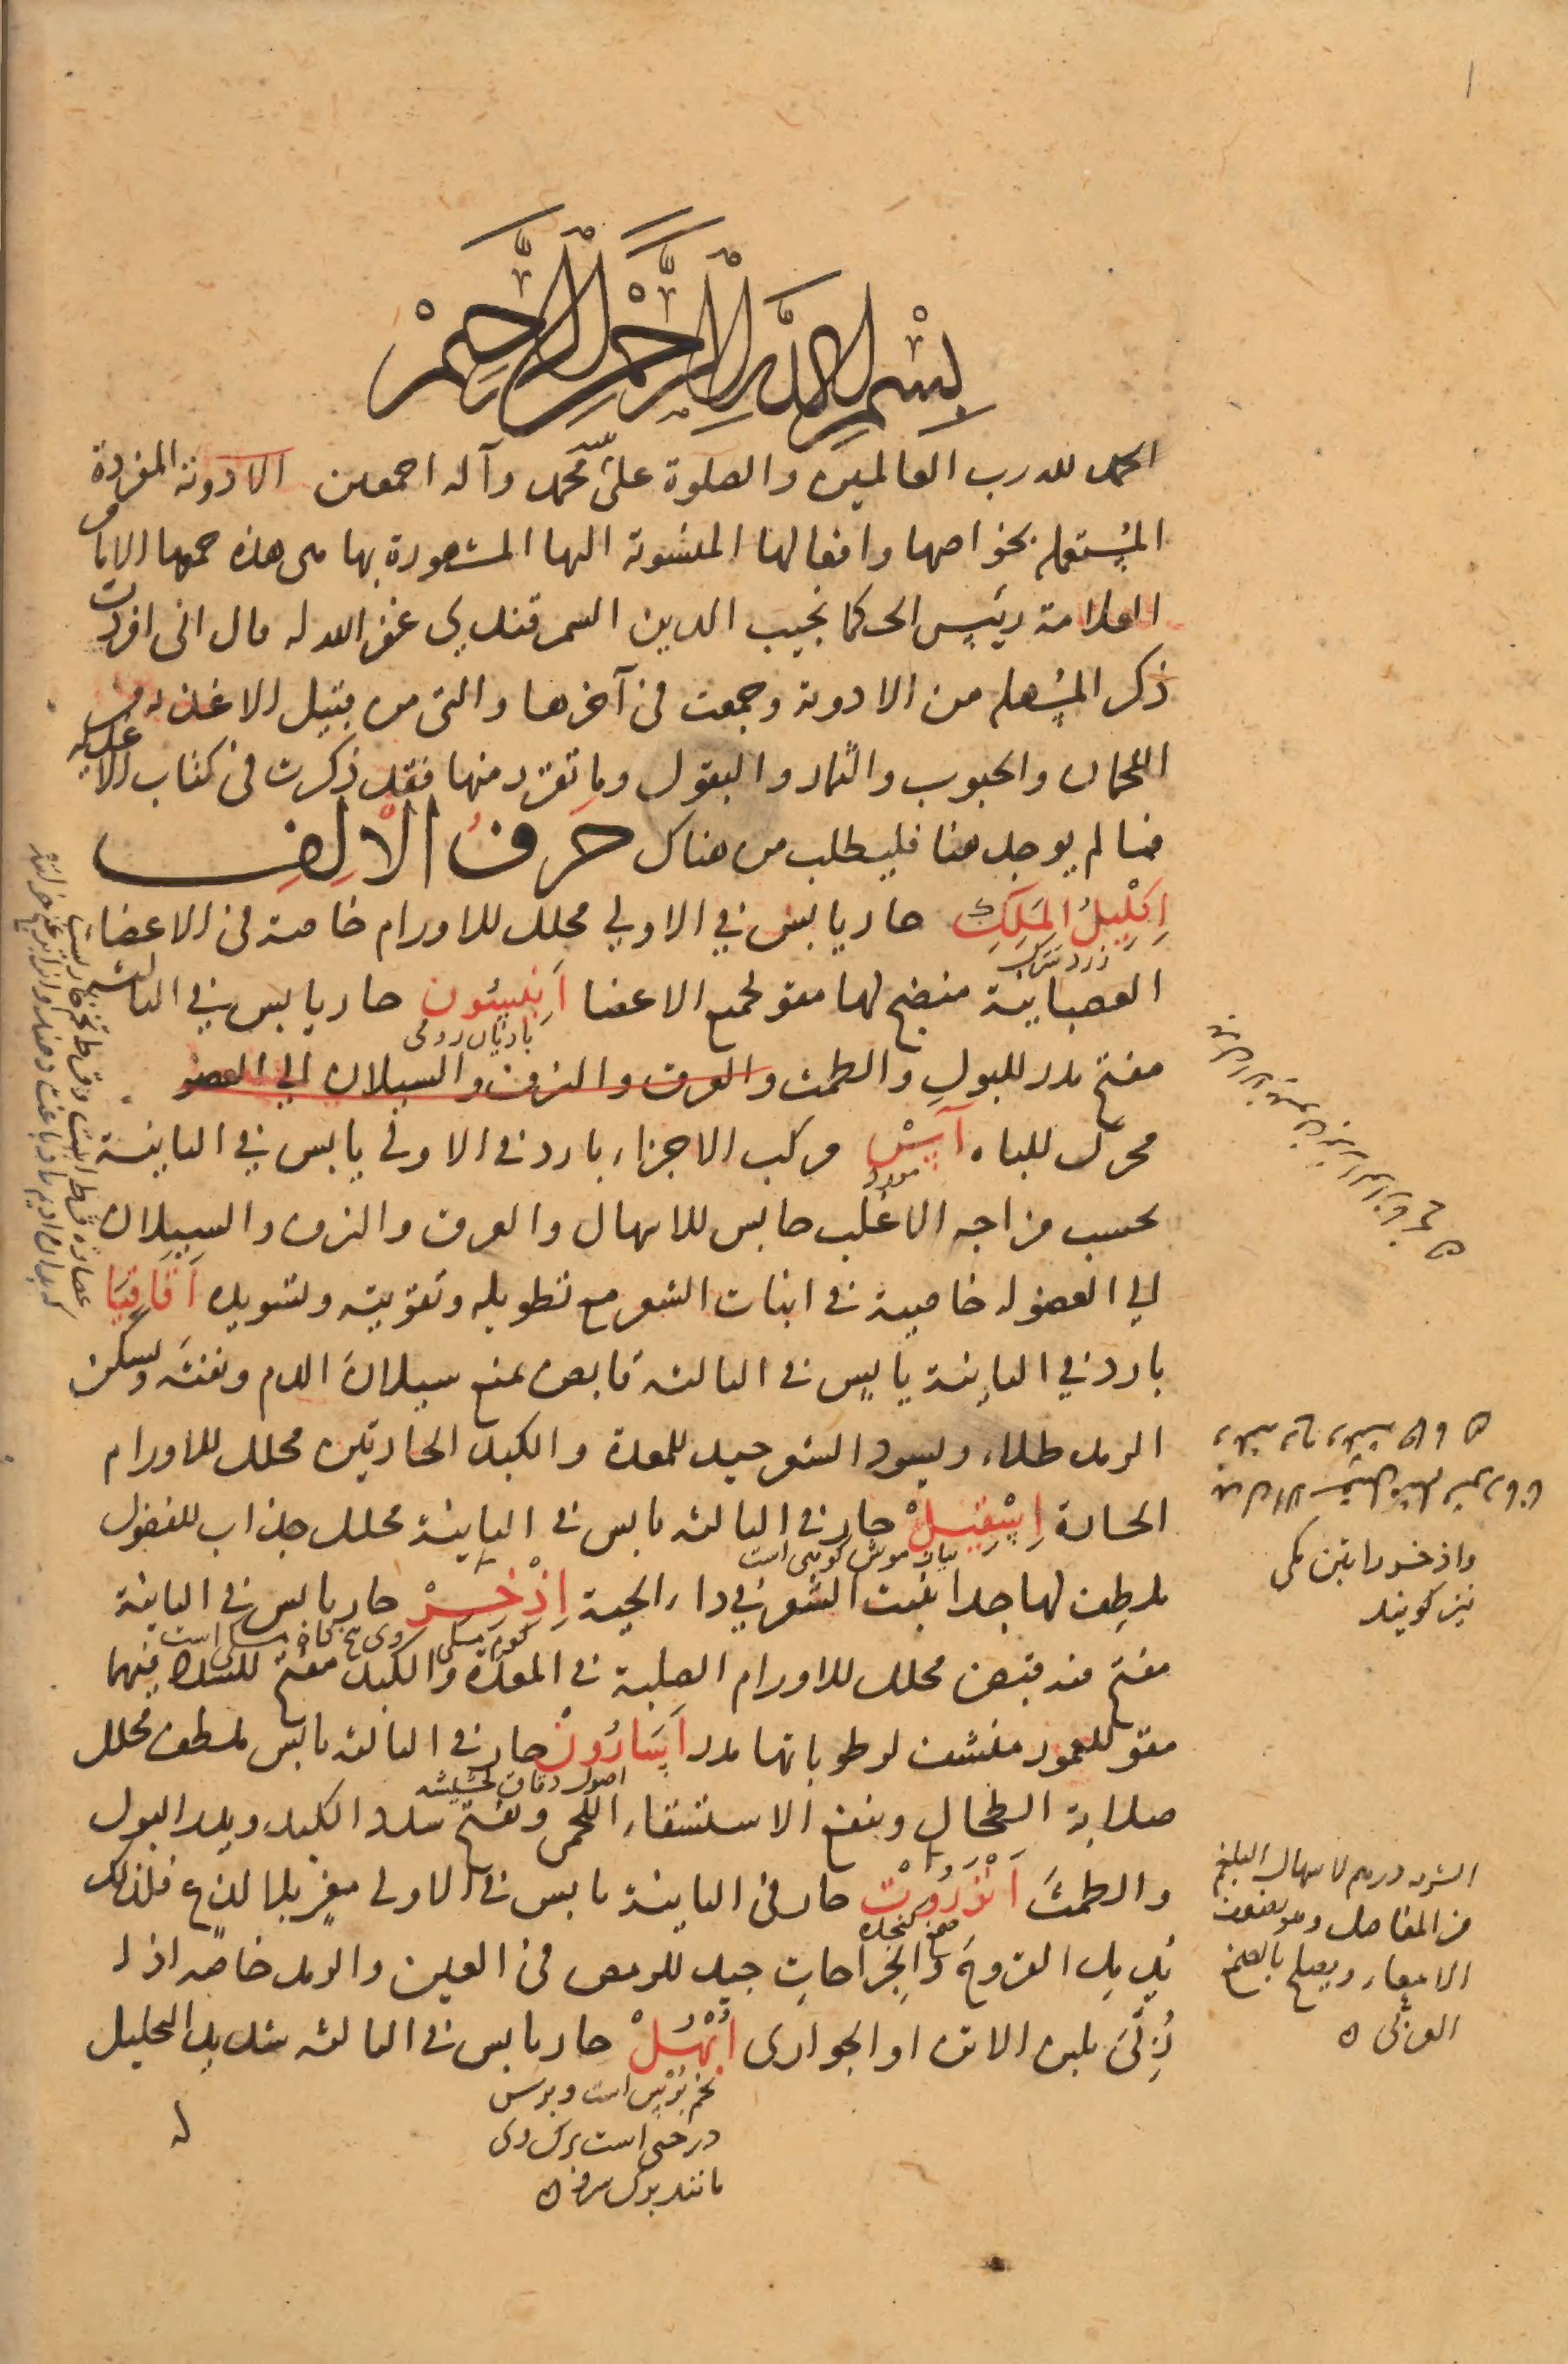 بِسْمِ اللهِ الرَّحْمنِ الرَّحِيمْ
الحمد لله رب العالمين والصلوة على محمد وآله اجمعين الادوية المفردة
المستعملة بخواصها وافعالها المنسوبة اليها المشهورة بها هى هذه جمعها الامام
العلامة رئيس الحكما نجيب الدين السمرقندي غفر الله له قال انى افردت
ذكر المسهلة من الادوية وجمعت فى آخرها والتى من قبيل الاغذية من
اللحمان والحبوب والثمار والبقول وما تفرد منها فقد ذكرت فى كتاب الاغذية
فما لم يوجد هنا فليطلب من هناك حَرفُ الاَلِفِ
اِكْلِيلُ المَلِكِ حار يابس في الاولي محلل للاورام خاصة فى الاعضاء
العصبانية منضج لها مقو لجميع الاعضا اَنيسُون حار يابس في الثالثة
بادیان رومی
مفتح مدر للبول والطمث والعرق والنزف والسيلان الي العضو
محرك للباه آسْ مركب الاجزاء بارد فى الاولى يابس في الثانية
مورد
بحسب مزاجه الاغلب حابس للاسهال والعرق والنزف والسيلان
الي العضو له خاصية فى انبات الشعر مع تطويله وتقويته وتسويده اَقَاقِيَا
بارد في الثانية يابس فى الثالثة قابض يمنع سيلان الدم ونفثه ويسكن
الرمد طلاء ويسود الشعر جيد للمعدة والكبد الحارتين محلل للاورام
الحارة اِسْقِيلْ حار فى الثالثة يابس فى الثانية محلل جذاب للفضول
پیاز موش کویی است
ملطف لها جدا ينبت الشعر في داء الحية اِذْخِرْ حار يابس في الثانية
مفتح فيه قبض محلل للاورام الصلبة فى المعدة والكبد مفتح للسدد فيهما
مقو للعمور منشف لرطوباتها مدر اَسَارُونْ حار فى الثالثة يابس ملطف محلل
صلابة الطحال وينفع الاستسقاء اللحمى ويفتح سدد الكبد ويدر البول
والطمث اَنْزَرُوتْ حار فى الثانية يابس فى الاولى مغر بلا لذع فلذلك
يدمل القروح والجراحات جيد للرمص فى العين والرمد خاصة اذا
رُبِّىَ بلبن الاتن او الجوارى اَبْهَلْ حار يابس فى الثالثة شديد التحليل
تخم برس است وبرس
درختى است برک وى
مانند برک سرو
له
واذخر را تبن مکى
نیز کویند
الشربة درهم لاسهال البلغم
من المفاصل وهو يضر
الامعاء ويصلح بالصمغ
العربى